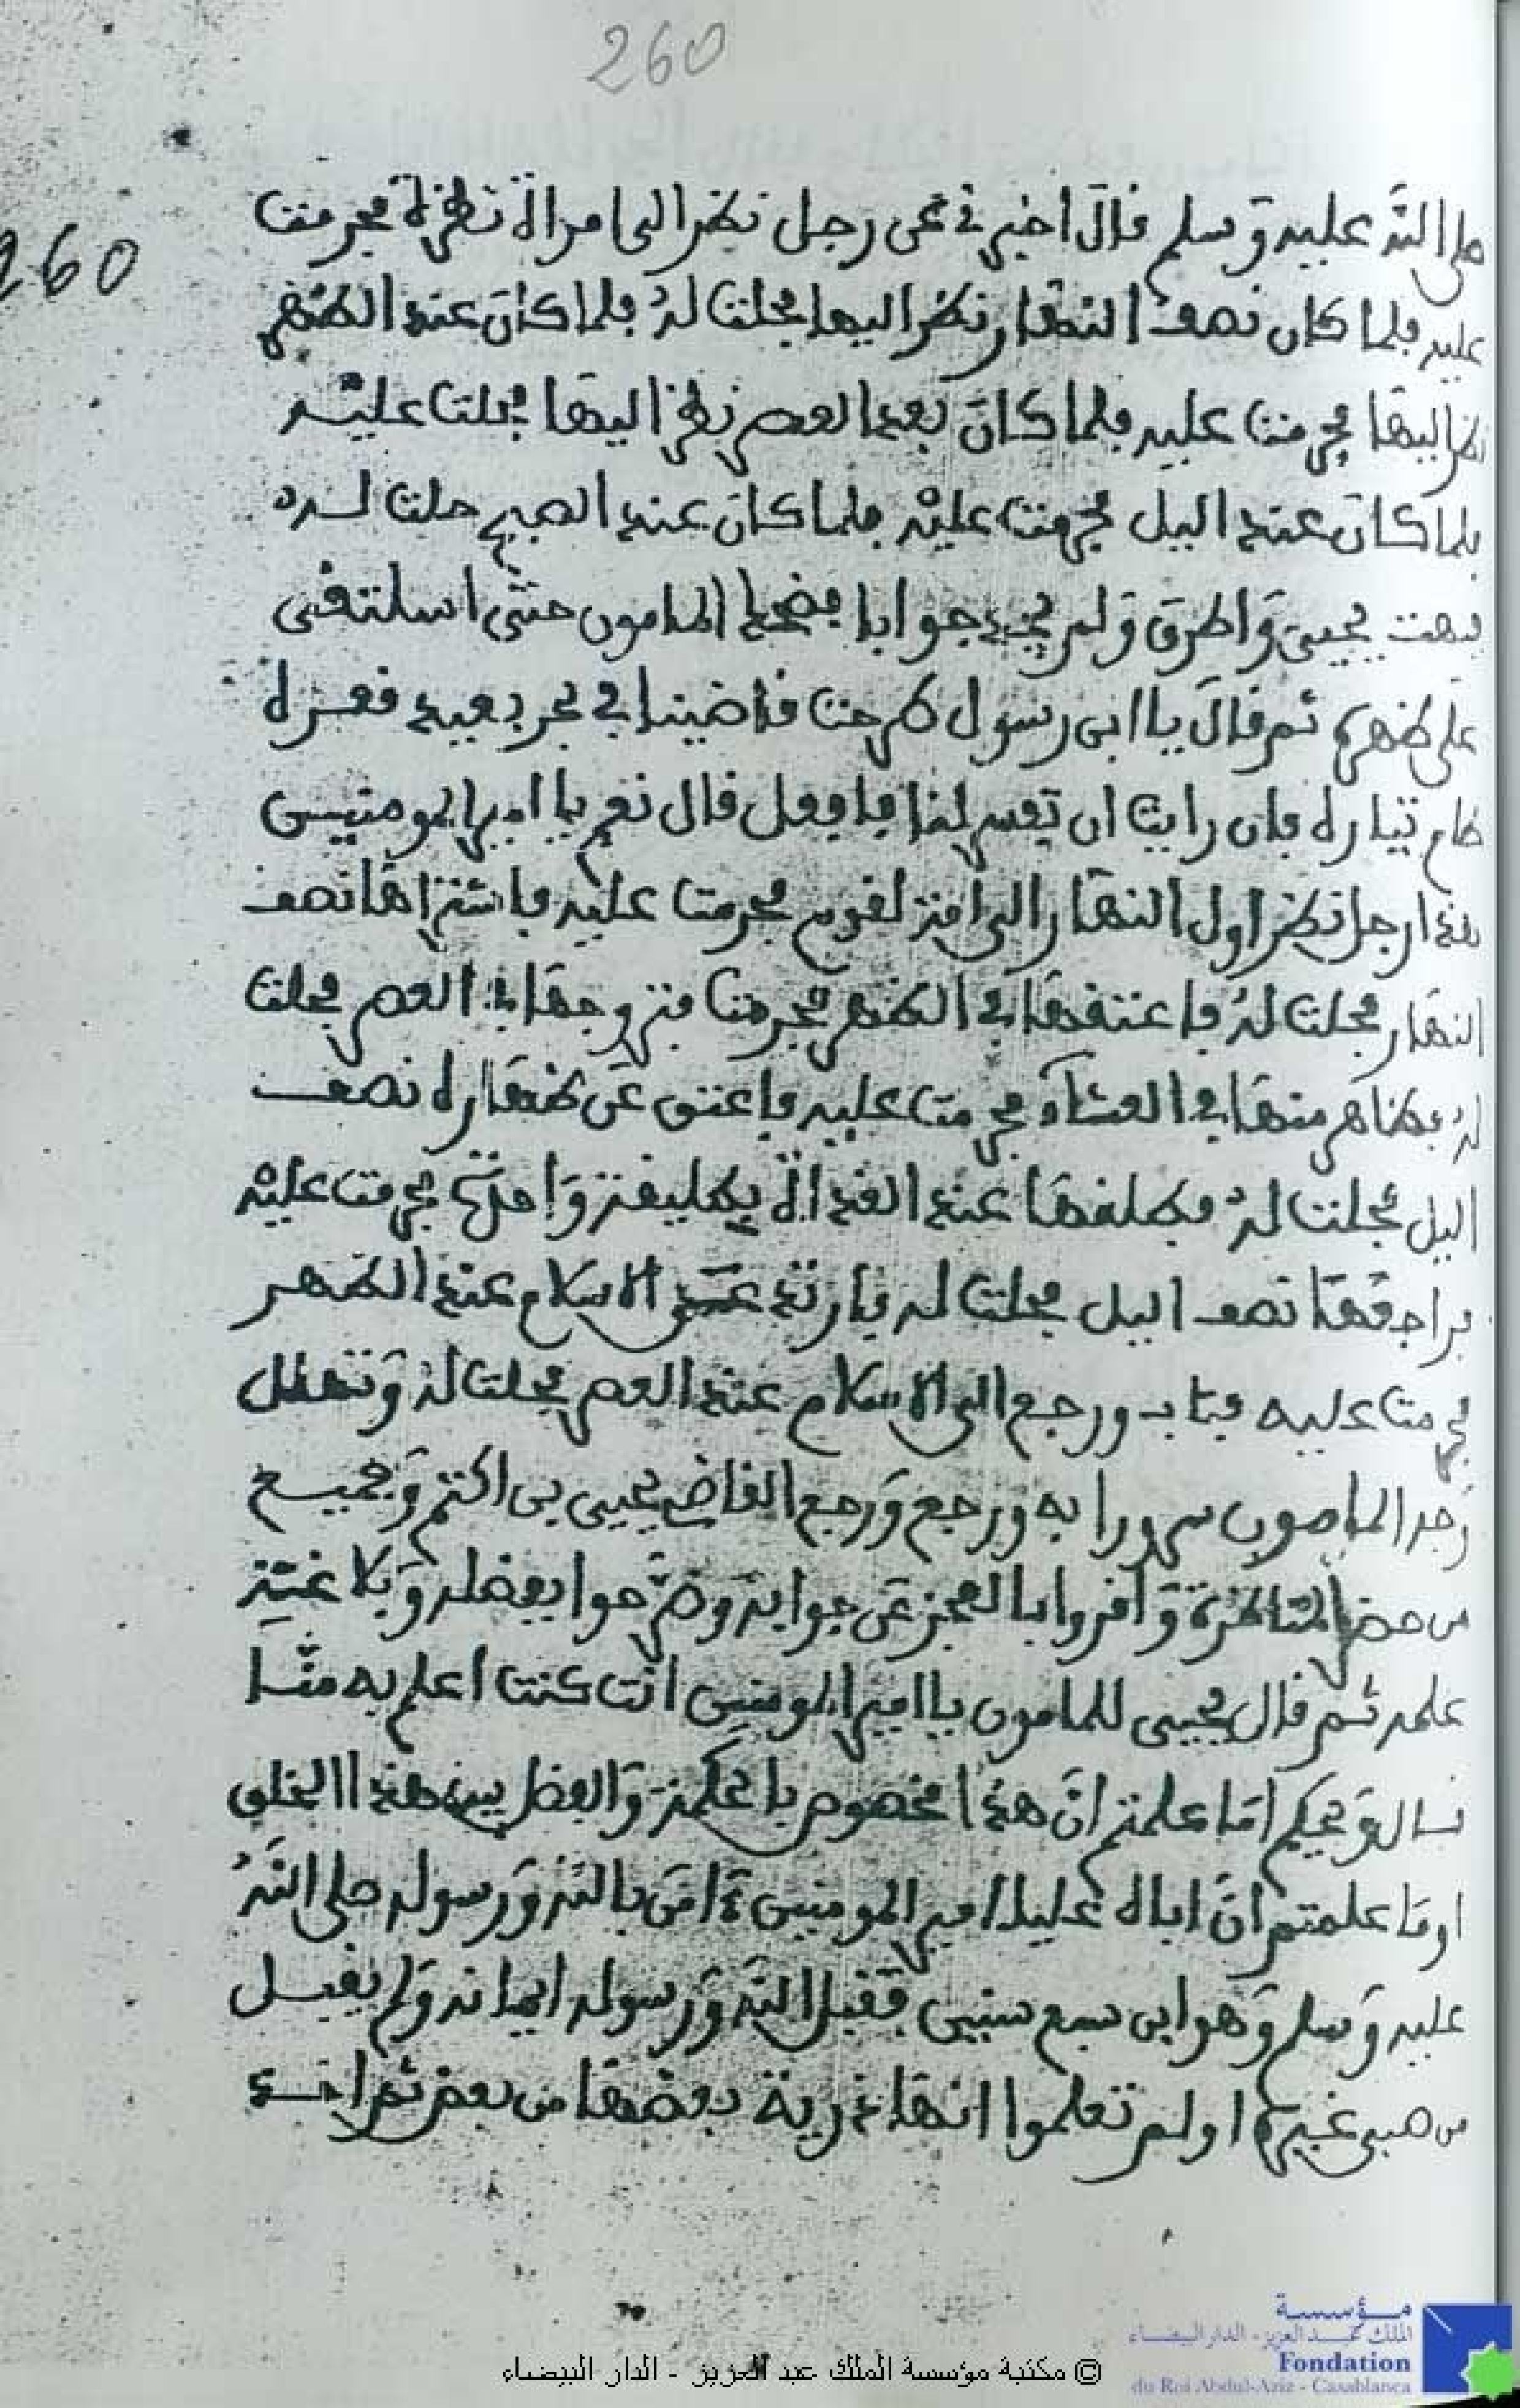 260
260
صلى الله عليه وسلم قال اخبرني عن رجل نظر الى امراة نظرة فحرمت
عليه فلما كان نصف النهار نظر اليها فحلت له فلما كان عند الظهر
نظر اليها فحرمت عليه فلما كان بعد العصر نظر اليها فحلت عليه
فلما كان عند اليل فحرمت عليه فلما كان عند الصبح حلت له
فبهت يحيى واطرق ولم يجد جوابا فضحك المامون حتى استلقى
على ظهره ثم قال يا ابن رسول طرحت قاضينا في بحر بعيد قعره
تياره فان رايت ان تفسر لنا فافعل قال نعم يا امير المومنين
هذا رجل نظر اول النهار الى امة لقوم فحرمت عليه فاشتراها نصف
النهار فحلت له فاعتقها في الظهر فحرمت فتزوجها في العصر فحلت
له فظاهر منها في العشاء فحرمت عليه فاعتق عن ظهاره نصف
اليل فحلت له فطلقها عند الغداة بطليقة واحدة فحرمت عليه
فراجعها نصف اليل فحلت له فارتد عن الاسلام عند الظهر
فحرمت عليه فتاب ورجع الى الاسلام عند العصر فحلت له وتهلل
وجه المامون سرورا به ورجع ورجع القاضي يحيى بن اكثم وجميع
من حضر المناظرة واقروا بالعجز عن جوابه وصرحوا بفضله وبلاغة
علمه ثم قال يحيى للمامون يا امير المومنين انت كنت اعلم به منا
فقال ويحكم اما علمتم ان هذا مخصوص بالحكمة والفضل بين هذا الخلق
اوما علمتم ان اباه عليا امير المومنين ءامن بالله ورسوله صلى الله
عليه وسلم وهو ابن سبع سنين فقبل الله ورسوله ايمانه ولم يقبل
من صبي غيره اولم تعلموا انها ذرية بعضها من بعض ثم انه
© مكتبة مؤسسة الملك عبد العزيز - الدار البيضاء
مؤسسة
الملك عبد العزيز - الدار البيضاء
Fondation
du Roi Abdul-Aziz - Casablanca